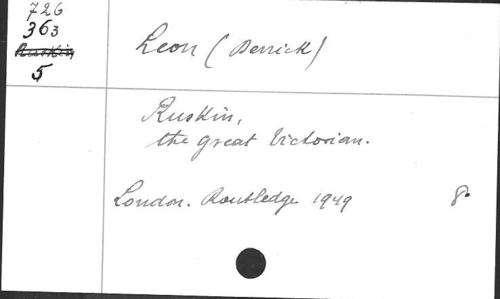 726
363
Ruskin
5
Leon (Derrick)
Ruskin,
the great Victorian.
London. Routledge 1949 8º